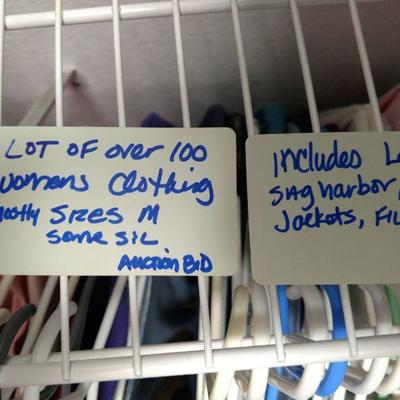 LOT OF over 100
womens Clothing
mostly SIZES M
some S;L
Auction BiD
Includes
SAg harbor,
Jackets,